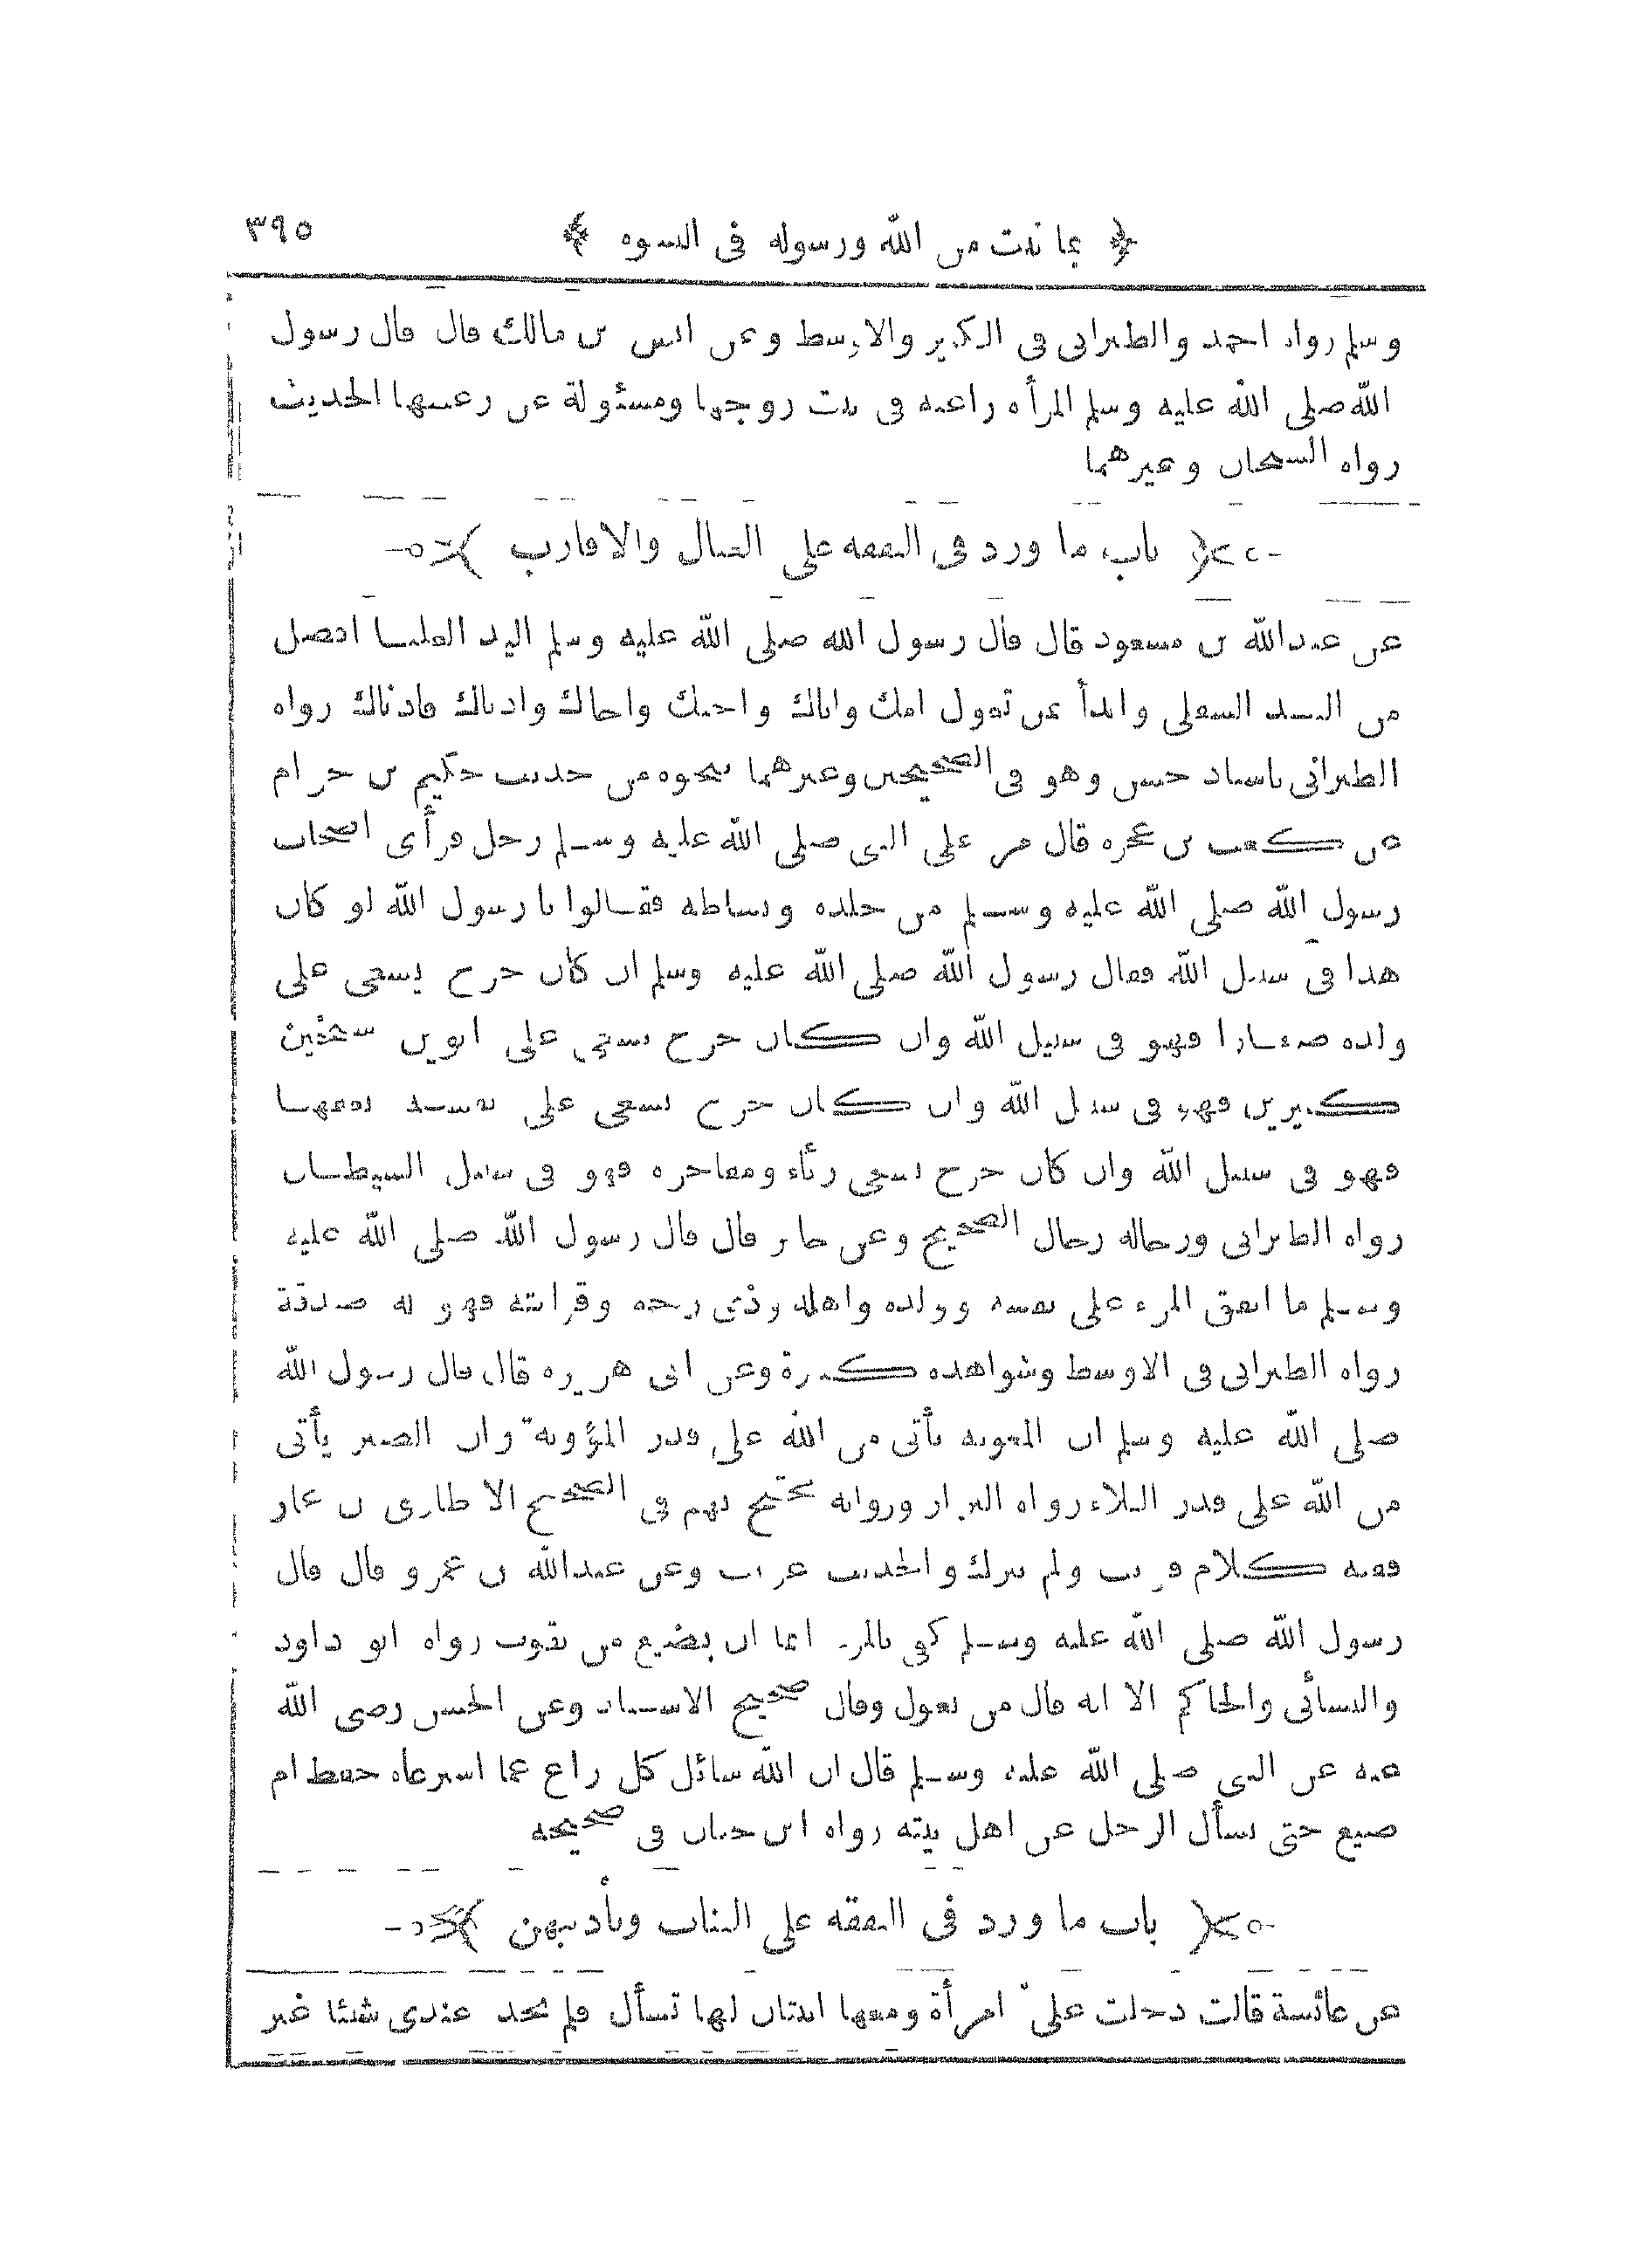 ﴿ بما ثبت من الله ورسوله في النسوه ﴾ ٣٩٥
وسلم رواه احمد والطبرانى فى الكبير والاوسط وعن انس بن مالك قال قال رسول
الله صلى الله عليه وسلم المرأه راعيه فى بيت زوجها ومسئولة عن رعيتها الحديث
رواه الشيخان وغيرهما
باب ما ورد فى النفقه على العيال والاقارب
عن عبدالله بن مسعود قال قال رسول الله صلى الله عليه وسلم اليد العليا افضل
من اليد السفلى وابدأ بمن تعول امك واباك واختك واخاك وادناك فادناك رواه
الطبرانى باسناد حسن وهو فى الصحيحين وغيرهما بنحوه من حديث حكيم بن حزام
عن كعب بن عجره قال مر على النبى صلى الله عليه وسلم رجل فرأى اصحاب
رسول الله صلى الله عليه وسلم من جلده ونشاطه فقالوا يا رسول الله لو كان
هذا فى سبيل الله فقال رسول الله صلى الله عليه وسلم ان كان خرج يسعى على
ولده صغارا فهو فى سبيل الله وان كان خرج يسعى على ابوين شيخين
كبيرين فهو فى سبيل الله وان كان خرج يسعى على نفسه يعفها
فهو فى سبيل الله وان كان خرج يسعى رئاء ومفاخره فهو فى سبيل الشيطان
رواه الطبرانى ورجاله رجال الصحيح وعن جابر قال قال رسول الله صلى الله عليه
وسلم ما انفق المرء على نفسه وولده واهله وذى رحمه وقرابته فهو له صدقة
رواه الطبرانى فى الاوسط وشواهده كثيرة وعن ابى هريره قال قال رسول الله
صلى الله عليه وسلم ان المعونه تأتى من الله على قدر المؤونة وان الصبر يأتى
من الله على قدر البلاء رواه البزار ورواته محتج بهم فى الصحيح الا طارق بن عمار
ففيه كلام قريب ولم يترك والحديث غريب وعن عبدالله بن عمرو قال قال
رسول الله صلى الله عليه وسلم كفى بالمرء اثما ان يضيع من يقوت رواه ابو داود
والنسائى والحاكم الا انه قال من يعول وقال صحيح الاسناد وعن الحسن رضى الله
عنه عن النبى صلى الله عليه وسلم قال ان الله سائل كل راع عما استرعاه حفظ ام
ضيع حتى يسأل الرجل عن اهل بيته رواه ابن حبان فى صحيحه
باب ما ورد فى النفقه على البنات وتأديبهن
عن عائشة قالت دخلت علىّ امرأة ومعها ابنتان لها تسأل فلم تجد عندى شيئا غير